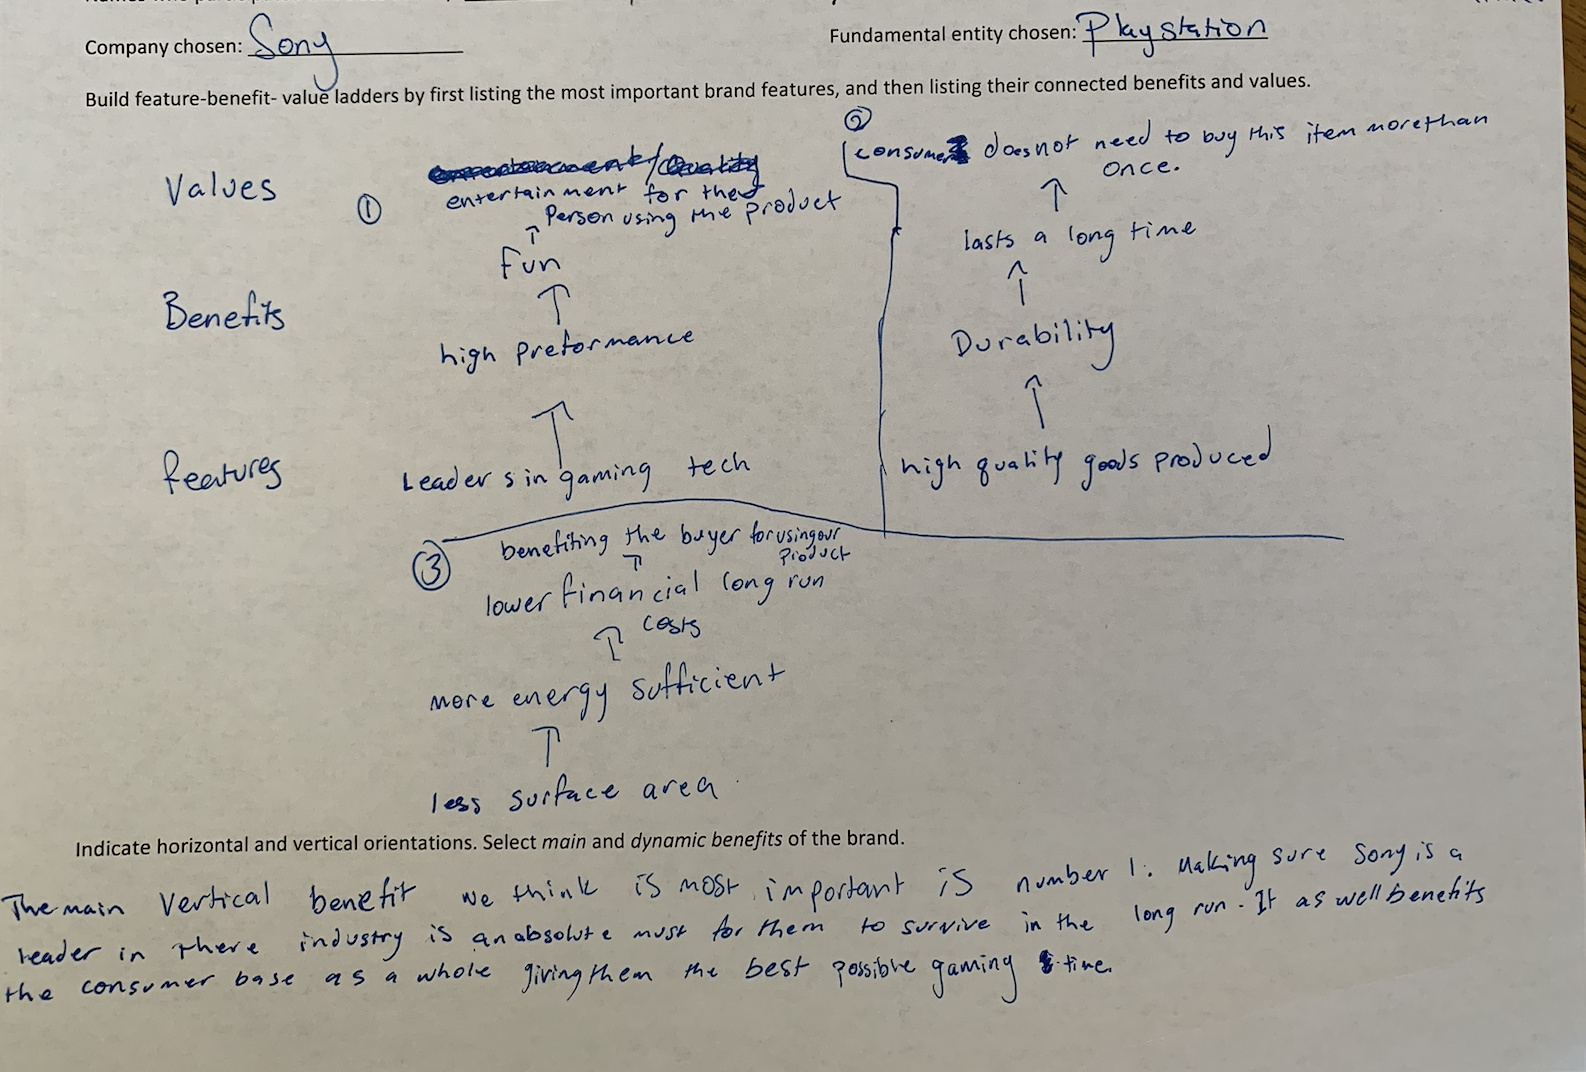 Company chosen: Sony
Fundamental entity chosen: Playstation
Build feature-benefit- value ladders by first listing the most important brand features, and then listing their connected benefits and values.
Values
①
entertainment for the
Person using the product
↑
fun
↑
Benefits
high preformance
↑
features
Leaders in gaming tech
②
consumer does not need to buy this item more than
once.
↑
lasts a long time
↑
Durability
↑
high quality goods produced
③
benefiting the buyer for using our
Product
↑
lower financial long run
costs
↑
more energy sufficient
↑
less surface area
Indicate horizontal and vertical orientations. Select main and dynamic benefits of the brand.
The main Vertical benefit we think is most important is number 1. Making sure Sony is a
leader in there industry is an absolute must for them to survive in the long run. It as well benefits
the consumer base as a whole giving them the best possible gaming time.